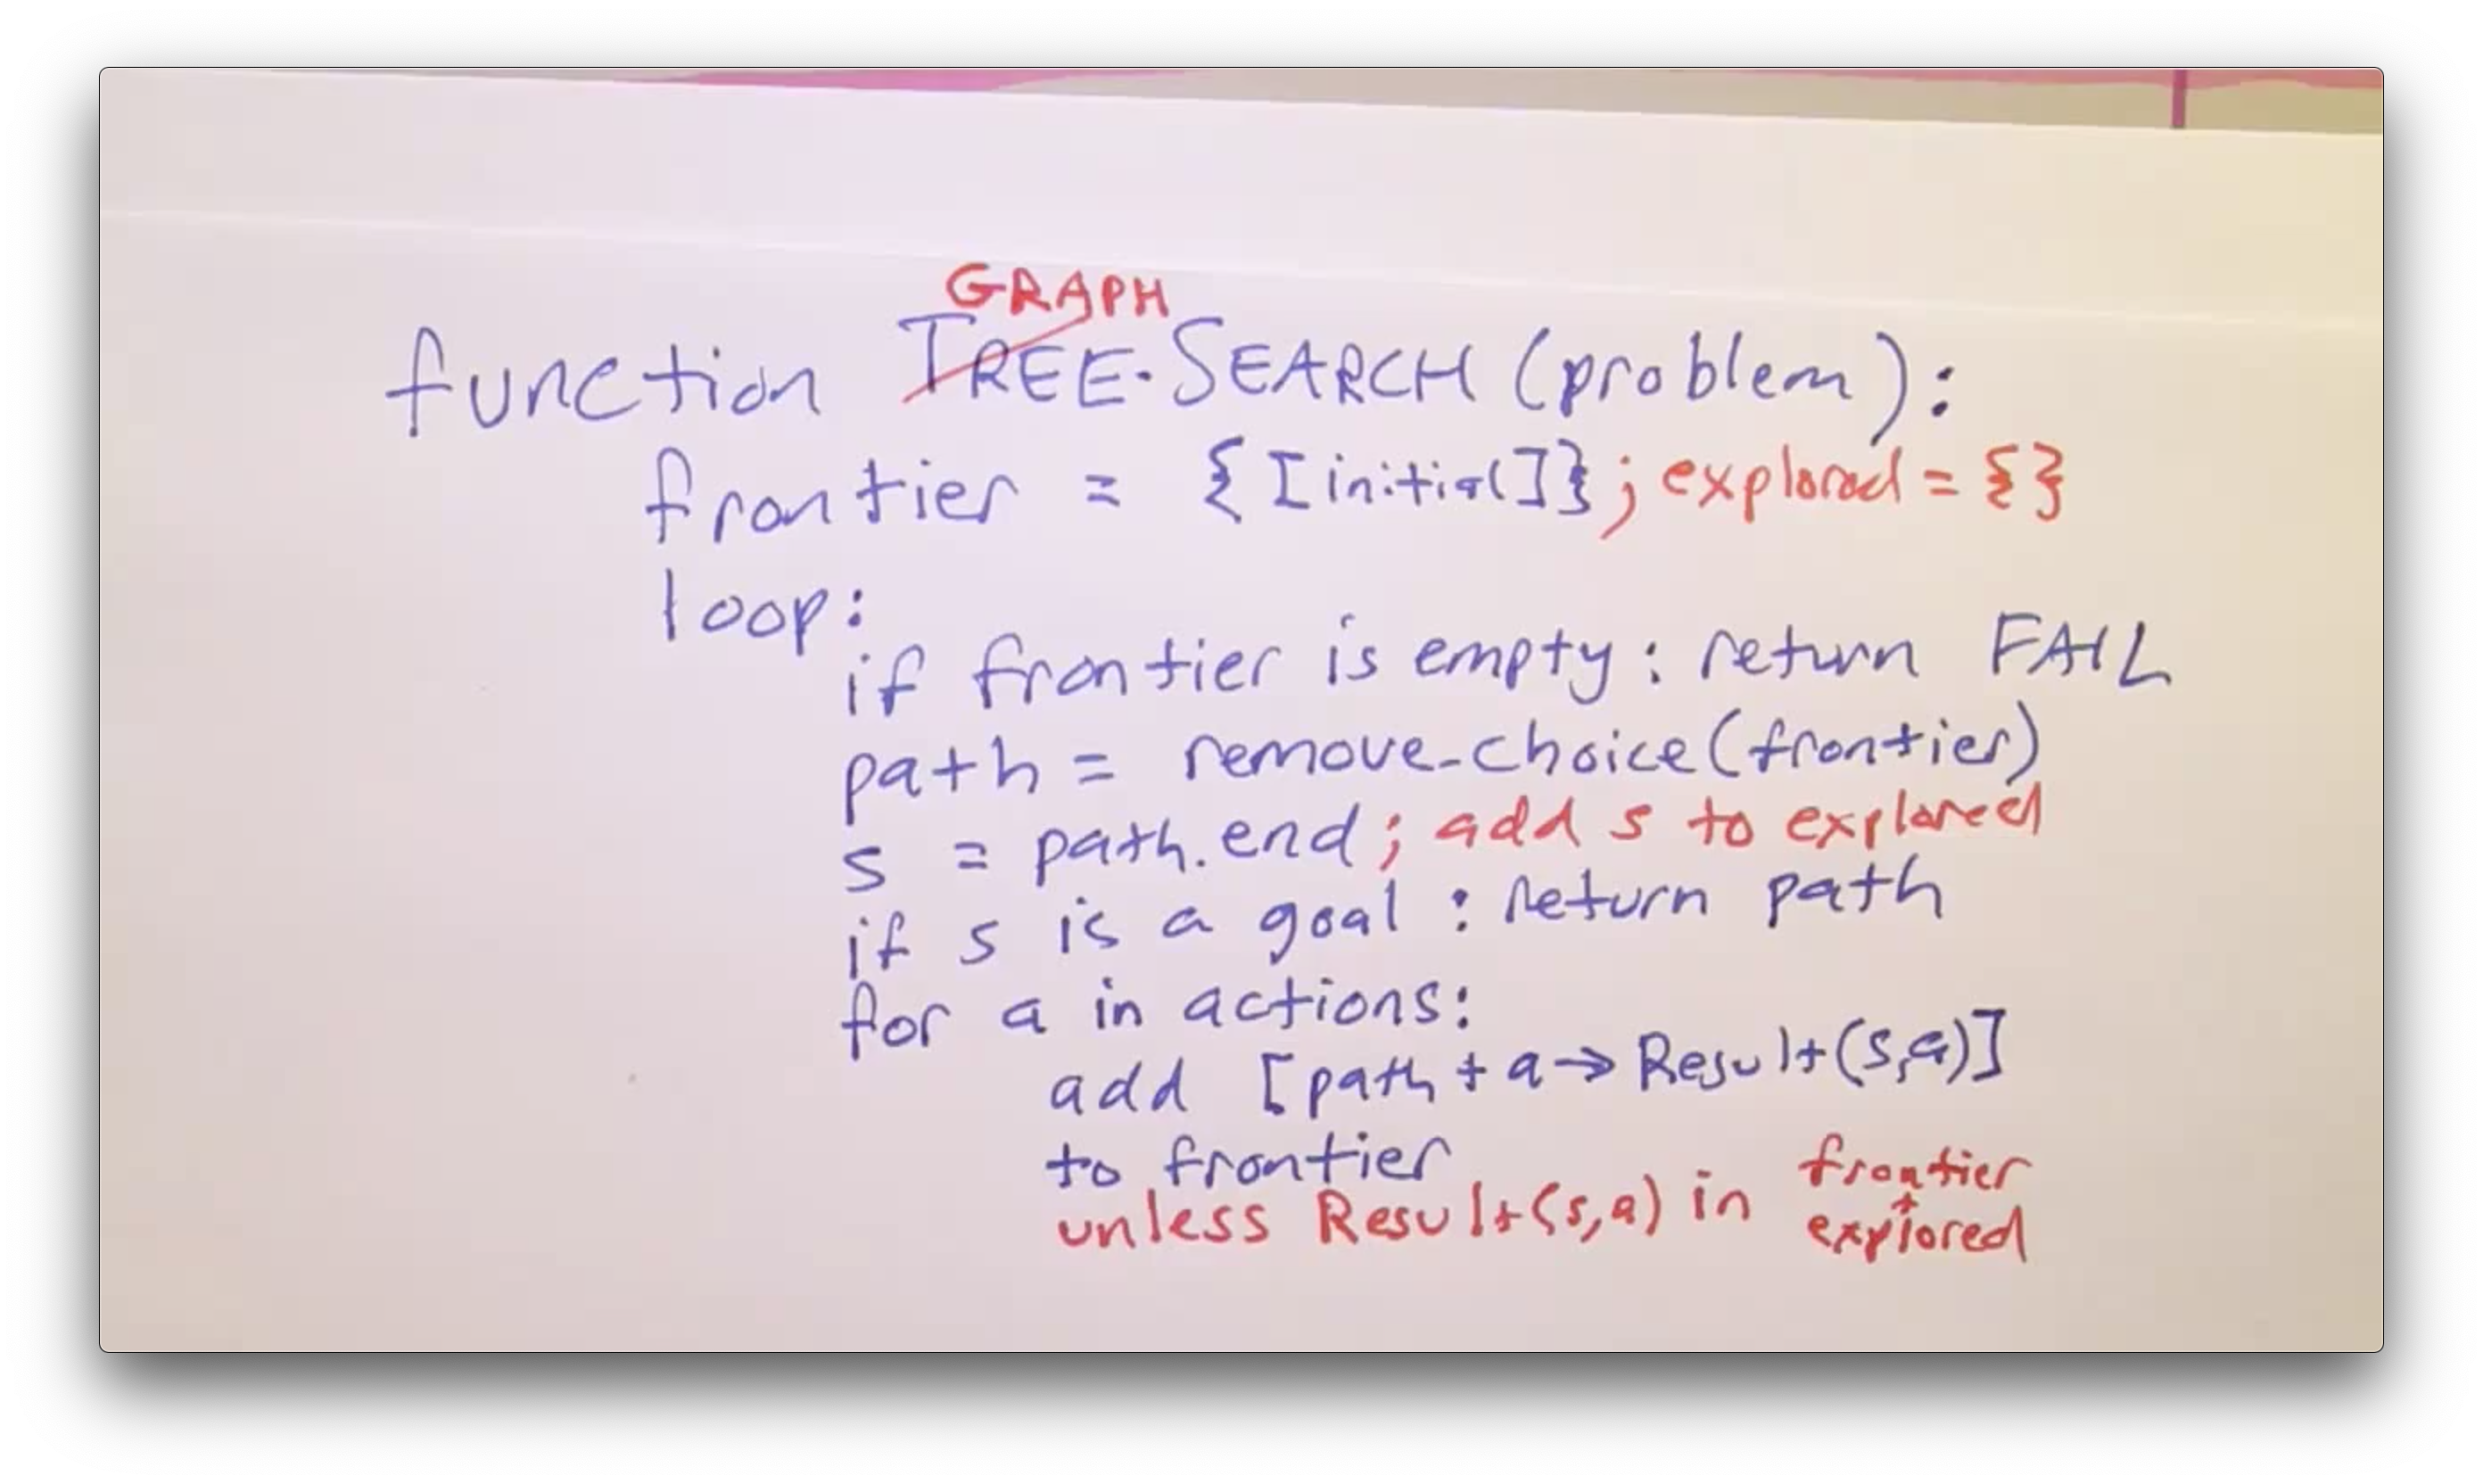 GRAPH
function TREE-SEARCH (problem):
frontier = {[initial]}; explored = {}
loop:
if frontier is empty: return FAIL
path = remove-choice(frontier)
s = path.end; add s to explored
if s is a goal: return path
for a in actions:
add [path + a → Result(s,a)]
to frontier
unless Result(s,a) in frontier
+
explored